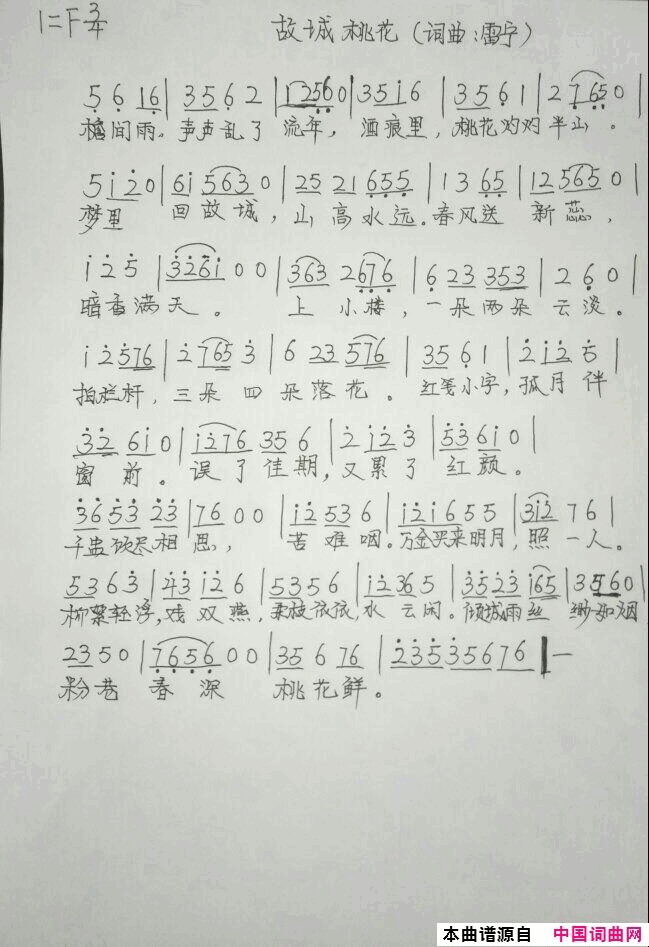 1=F 3/4 故城桃花（词曲:雷宁）
5 6 16 | 35 6 2 | 12560 | 351 6 | 35 6 1 | 2 765 0 |
檐间雨。声声乱了 流年，酒痕里，桃花灼灼半山。
5 1 2 0 | 61 563 0 | 25 21 655 | 1 3 65 | 12 565 0 |
梦里 回故城，山高水远。春风送 新蕊，
1 2 5 | 3261 0 0 | 363 2676 | 6 23 353 | 2 6 0 |
暗香满天。 上 小楼，一朵两朵 云淡。
1 2 576 | 2 765 3 | 6 23 576 | 35 6 1 | 2 12 5 |
拍栏杆，三朵 四 朵落花。红笺小字，孤月伴
32 61 0 | 1276 35 6 | 2 12 3 | 53 61 0 |
窗 前。误了佳期，又累了 红颜。
36 53 23 | 76 0 0 | 12 53 6 | 1216 5 5 | 312 7 6 |
千盅饮尽相 思， 苦难咽。万金买来明月，照一人。
53 6 3 | 43 12 6 | 53 5 6 | 12 36 5 | 35 23 165 | 3 5 6 0 |
柳絮轻浮，戏双燕，柔枝依依，水云闲。倾城雨丝 缈如烟
23 5 0 | 7656 0 0 | 35 6 76 | 2353 56 76 ‖ —
粉巷 春深 桃花鲜。
本曲谱源自 中国词曲网